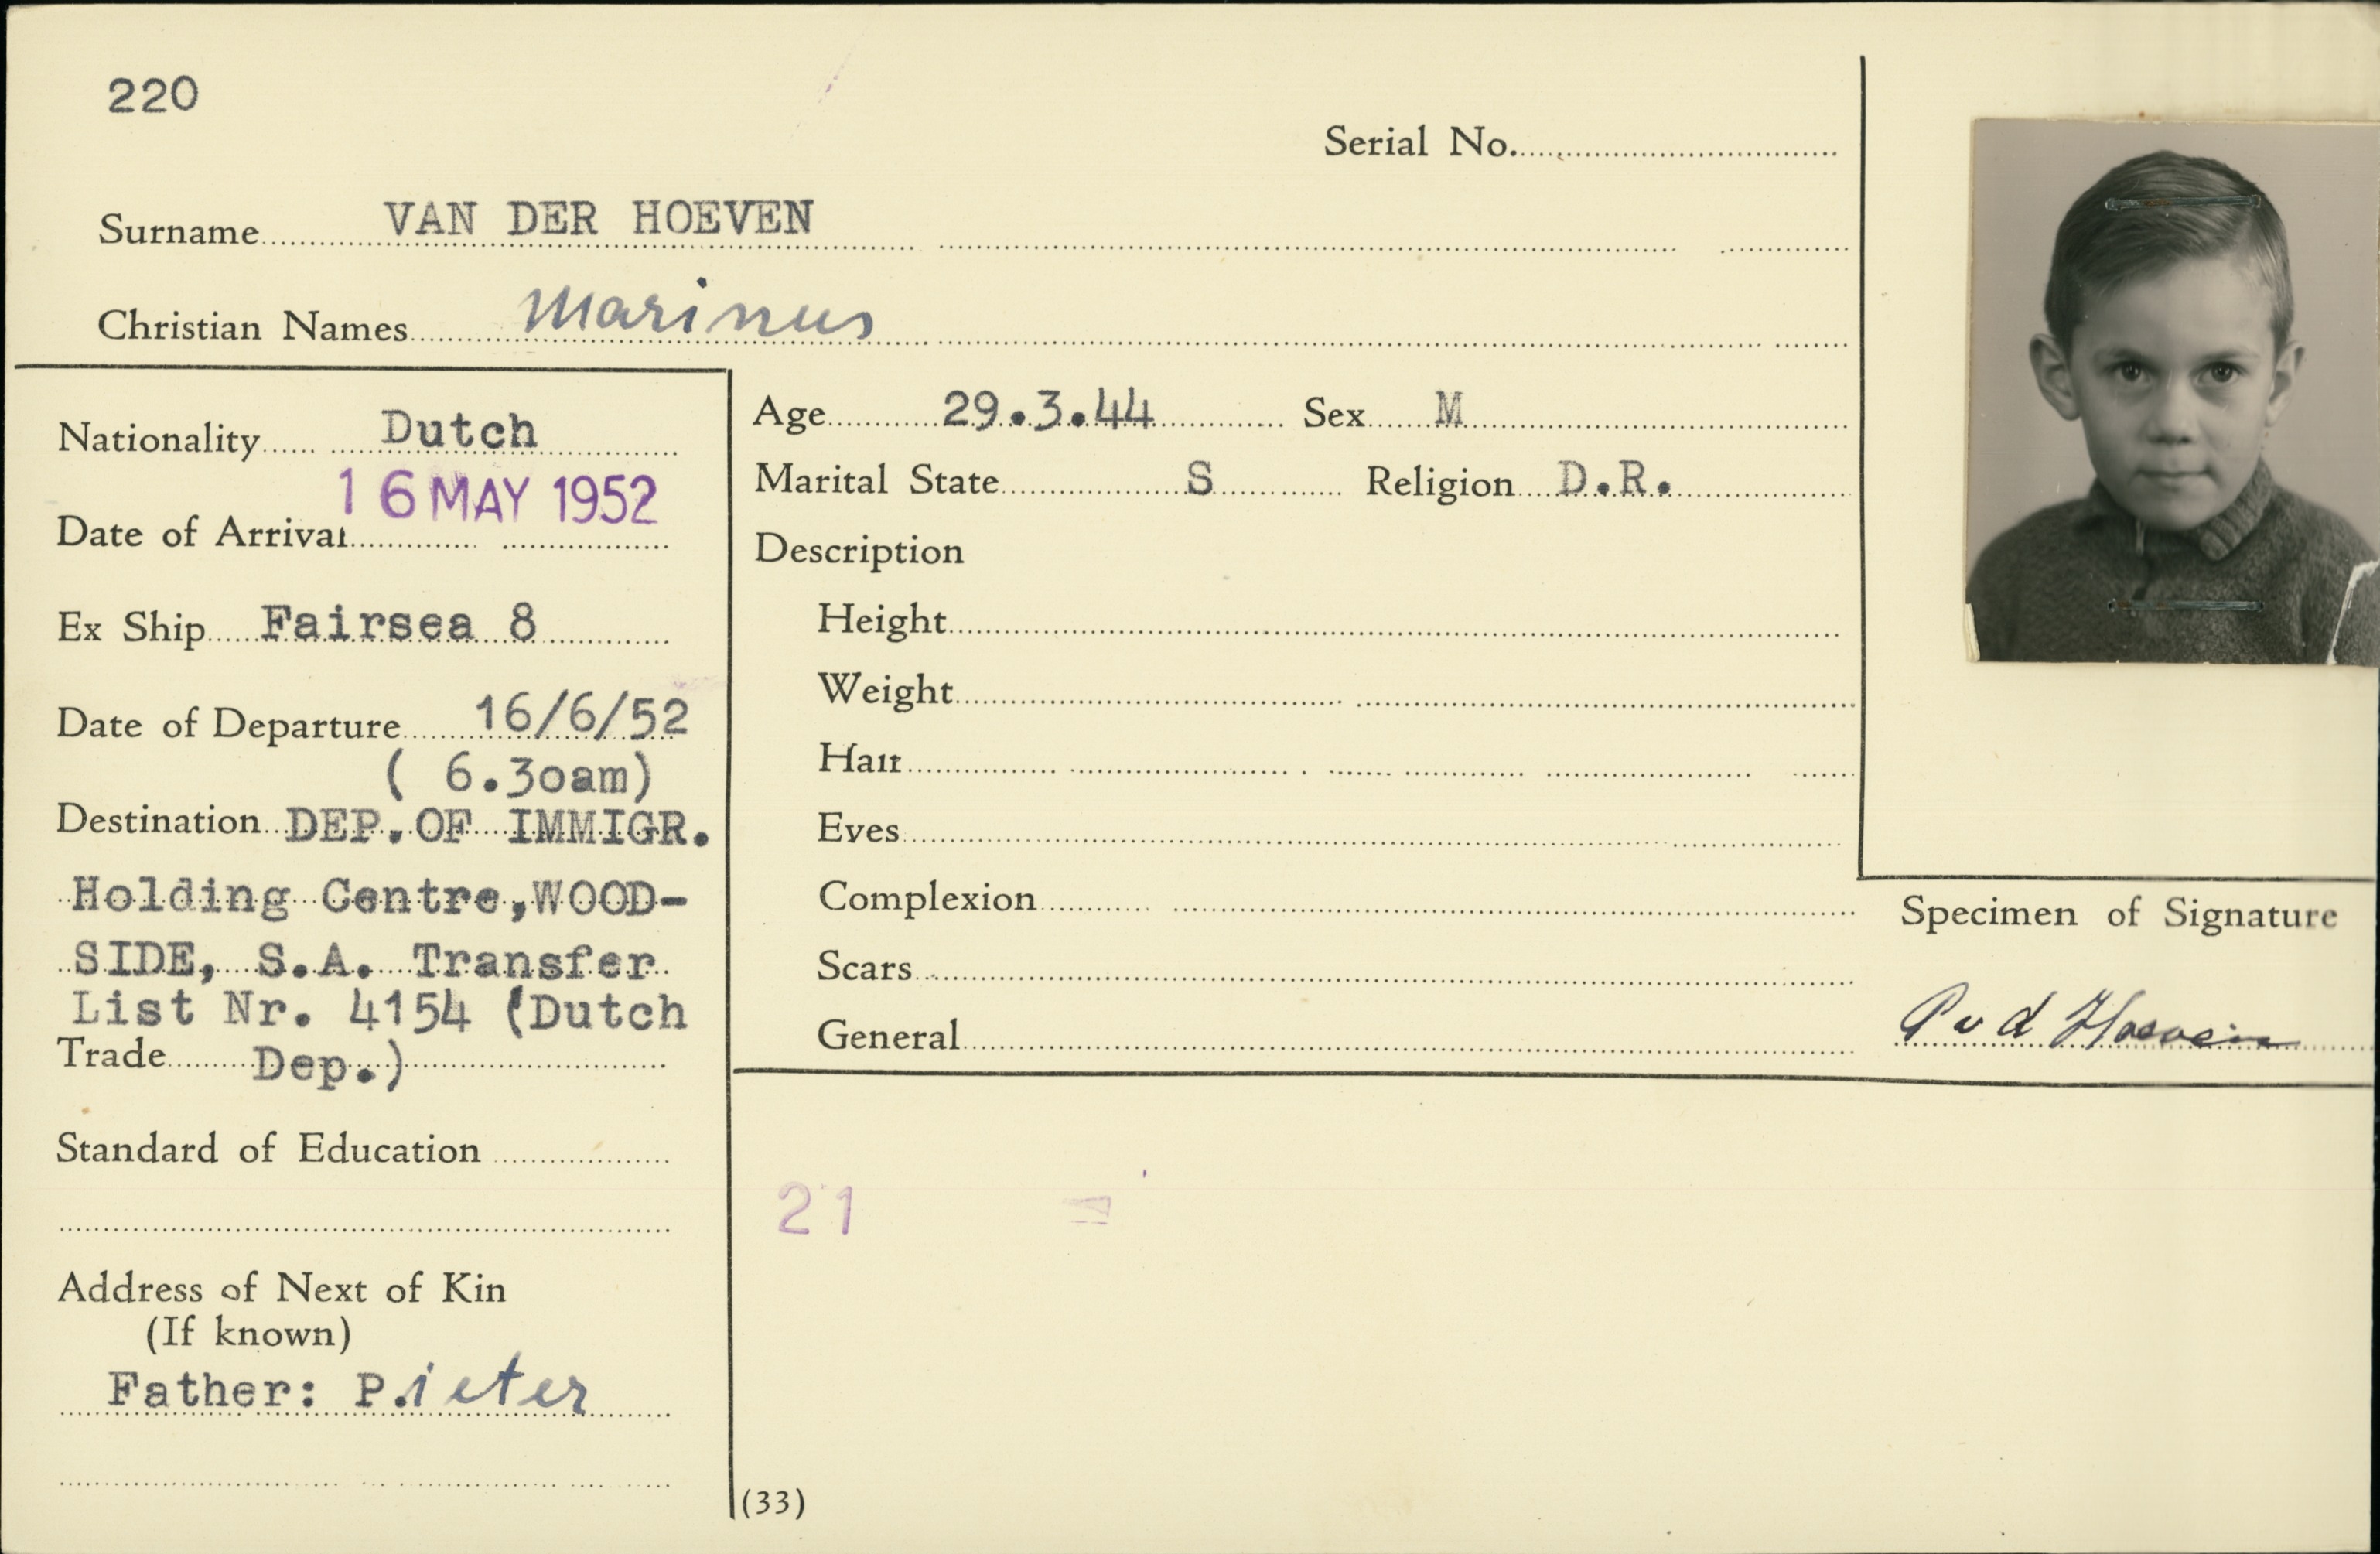 220
Serial No.
Surname VAN DER HOEVEN
Christian Names Marinus
Nationality Dutch
16 MAY 1952
Date of Arrival
Ex Ship Fairsea 8
Date of Departure 16/6/52
( 6.30am)
Destination DEP.OF IMMIGR.
Holding Centre,WOOD-
SIDE, S.A. Transfer
List Nr. 4154 (Dutch
Trade Dep.)
Standard of Education
Address of Next of Kin
(If known)
Father: P.ieter
Age 29.3.44 Sex M
Marital State S Religion D.R.
Description
Height
Weight
Hair
Eyes
Complexion
Scars
General
Specimen of Signature
P v d Hoeven
21
(33)